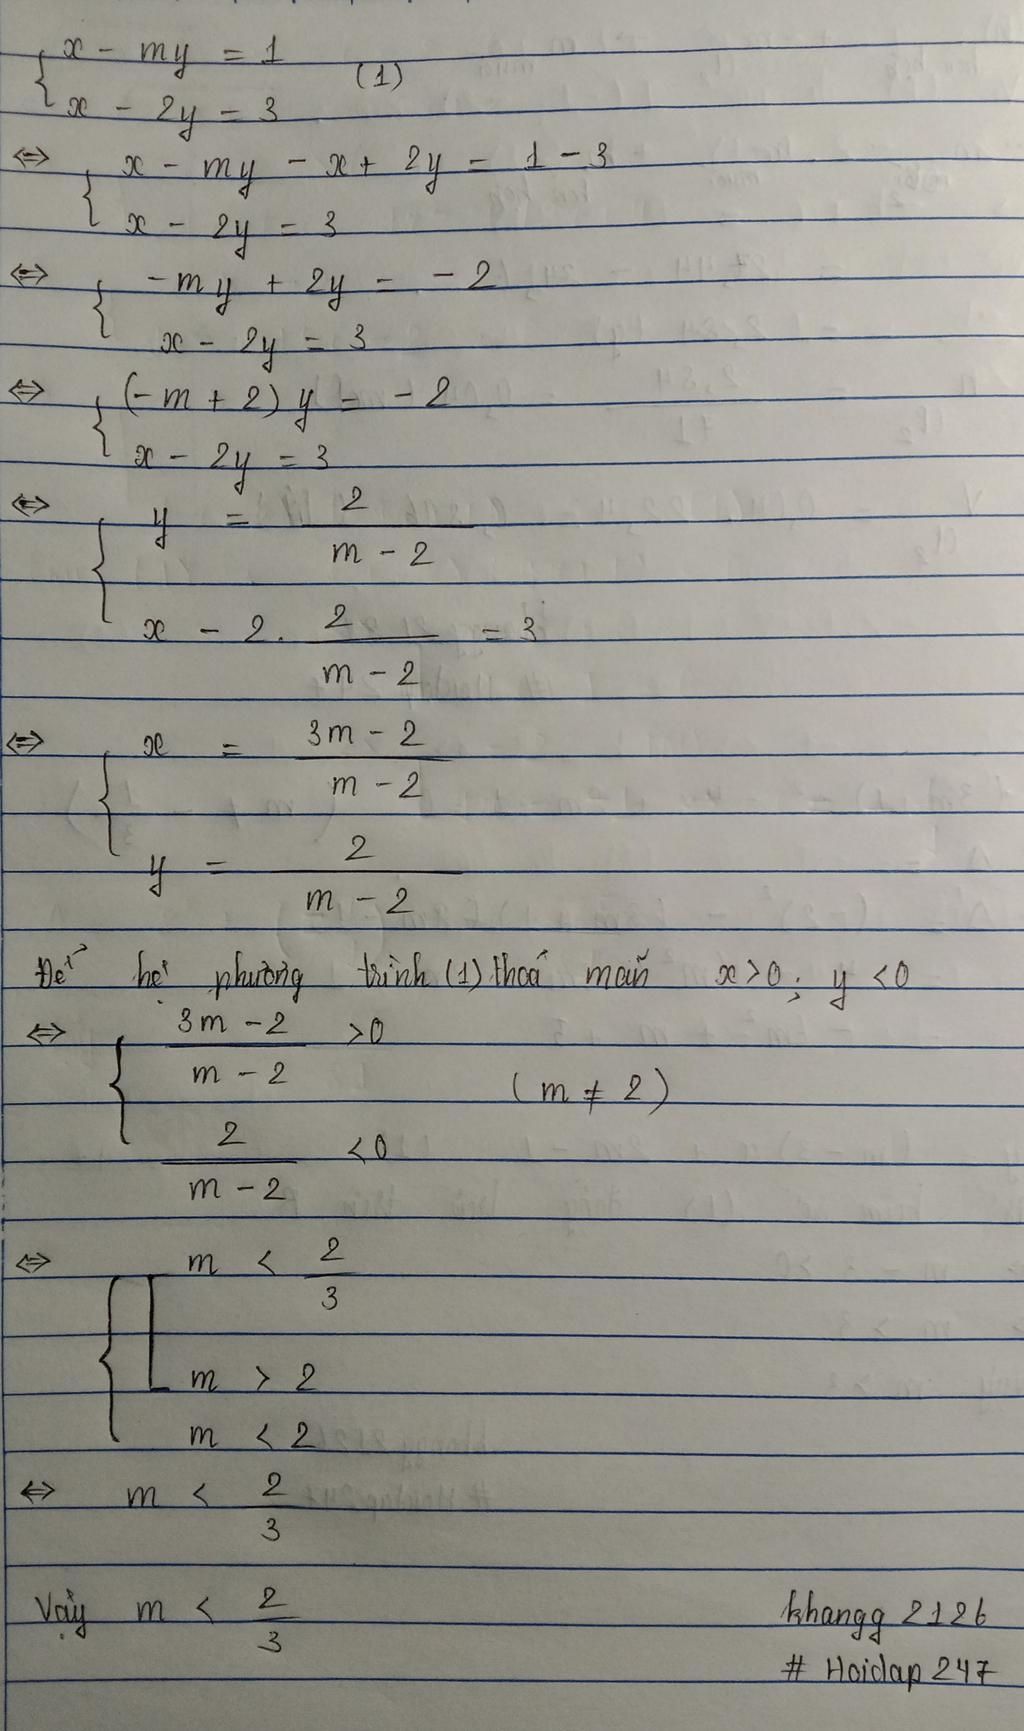 { x - my = 1
{ x - 2y = 3 (1)
⇔ { x - my - x + 2y = 1 - 3
{ x - 2y = 3
⇔ { -my + 2y = -2
{ x - 2y = 3
⇔ { (-m + 2) y = -2
{ x - 2y = 3
⇔ { y = 2 / (m - 2)
{ x - 2. 2 / (m - 2) = 3
⇔ { x = (3m - 2) / (m - 2)
{ y = 2 / (m - 2)
Để hệ phương trình (1) thoả mãn x > 0 ; y < 0
⇔ { (3m - 2) / (m - 2) > 0
{ 2 / (m - 2) < 0 (m ≠ 2)
⇔ { [ m < 2/3
[ m > 2
{ m < 2
⇔ m < 2/3
Vậy m < 2/3
khangg 2126
# Hoidap 247